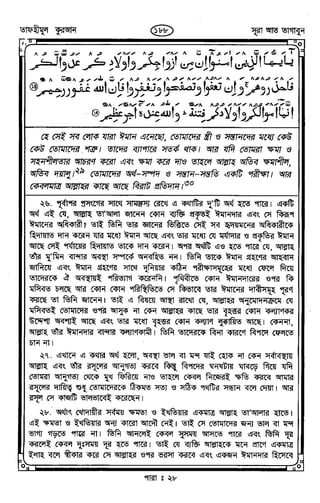 তাফহীমুল কুরআন
১৮৮
সূরা আত তাগাবুন
يٰۤاَيُّهَا الَّذِيْنَ اٰمَنُوْۤا اِنَّ مِنْ اَزْوَاجِكُمْ وَاَوْلَادِكُمْ عَدُوًّا لَّكُمْ
فَاحْذَرُوْهُمْ ۚ وَاِنْ تَعْفُوْا وَتَصْفَحُوْا وَتَغْفِرُوْا فَاِنَّ اللّٰهَ غَفُوْرٌ رَّحِيْمٌ ⑭
اِنَّمَاۤ اَمْوَالُكُمْ وَاَوْلَادُكُمْ فِتْنَةٌ ؕ وَاللّٰهُ عِنْدَهٗۤ اَجْرٌ عَظِيْمٌ ⑮
হে সেই সব লোক যারা ঈমান এনেছো, তোমাদের স্ত্রী ও সন্তানদের মধ্যে কেউ
কেউ তোমাদের শত্রু। তাদের ব্যাপারে সতর্ক থাক। আর যদি তোমরা ক্ষমা ও
সহনশীলতার আচরণ করো এবং ক্ষমা করে দাও তাহলে আল্লাহ অতীব ক্ষমাশীল,
অতীব দয়ালু।২৯ তোমাদের অর্থ-সম্পদ ও সন্তান-সন্ততি একটি পরীক্ষা। আর
কেবলমাত্র আল্লাহর কাছে আছে বিরাট প্রতিদান।৩০
২৬. পূর্বাপর প্রসংগের সাথে সামঞ্জস্য রেখে এ কথাটির দু'টি অর্থ হতে পারে। একটি
অর্থ এই যে, আল্লাহ তা'আলা জানেন কোন ব্যক্তি প্রকৃতই ঈমানদার এবং সে কিরূপ
ঈমানের অধিকারী। তাই তিনি তার জ্ঞানের ভিত্তিতে সেই সব হৃদয়মনের অধিকারীকে
হিদায়াত দান করেন যার মধ্যে ঈমান আছে এবং তার মধ্যে যে মর্যাদার ও প্রকৃতির ঈমান
আছে সেই পর্যায়ের হিদায়াত তাকে দান করেন। অপর অর্থটি এও হতে পারে যে, আল্লাহ
তাঁর মু'মিন বান্দার অবস্থা সম্পর্কে অনবহিত নন। তিনি তাকে ঈমান গ্রহণের আহবান
জানিয়ে এবং ঈমান গ্রহণের সাথে দুনিয়ার কঠিন পরীক্ষাসমূহের মধ্যে ফেলে দিয়ে
তাদেরকে ঐ অবস্থায়ই পরিত্যাগ করেননি। পৃথিবীতে কোন্ ঈমানদারের ওপর কি
মসিবত চলছে আর কোন কোন পরিস্থিতিতে সে কিভাবে তার ঈমানের দাবীসমূহ পূরণ
করছে তা তিনি জানেন। তাই এ বিষয়ে আস্থা রাখো যে, আল্লাহর অনুমোদনক্রমে যে
মসিবতই তোমাদের ওপর আসুক না কেন আল্লাহর কাছে তার বৃহত্তর কোন কল্যাণকর
উদ্দেশ্য অবশ্যই আছে এবং তার মধ্যে বৃহত্তর কোন কল্যাণ লুক্কায়িত আছে। কেননা,
আল্লাহ তাঁর ঈমানদার বান্দার কল্যাণকামী। তিনি তাদেরকে বিনা কারণে বিপদে ফেলতে
চান না।
২৭. এখানে এ কথার অর্থ হলো, অবস্থা ভাল বা মন্দ যাই হোক না কেন সর্বাবস্থায়
আল্লাহ এবং তাঁর রসূলের আনুগত্য করবে কিন্তু বিপদের ঘনঘটায় ঘাবড়ে গিয়ে যদি
তোমরা আনুগত্য থেকে মুখ ফিরিয়ে নাও তাহলে কেবল নিজেরই ক্ষতি করবে আমার
রসূলের দায়িত্ব শুধু তোমাদেরকে ঠিকমত সত্য ও সঠিক পথটির সন্ধান বলে দেয়া। আর
রসূল সে কাজটি ভালভাবেই করেছেন।
২৮. অর্থাৎ খোদায়ীর সর্বময় ক্ষমতা ও ইখতিয়ার একমাত্র আল্লাহ তা'আলার হাতে।
এই ক্ষমতা ও ইখতিয়ার অন্য কারো আদৌ নেই। তাই সে তোমাদের জন্য ভাল বা মন্দ
ভাগ্য গড়তে পারে না। তিনি আনলেই কেবল সুসময় আসতে পারে এবং তিনি দূর
করলেই কেবল দুঃসময় দূর হতে পারে। তাই যে ব্যক্তি আল্লাহকে মনে প্রাণে একমাত্র
ইলাহ বলে স্বীকার করে সে আল্লাহর ওপর ভরসা করবে এবং একজন ঈমানদার হিসেবে
পারা : ২৮